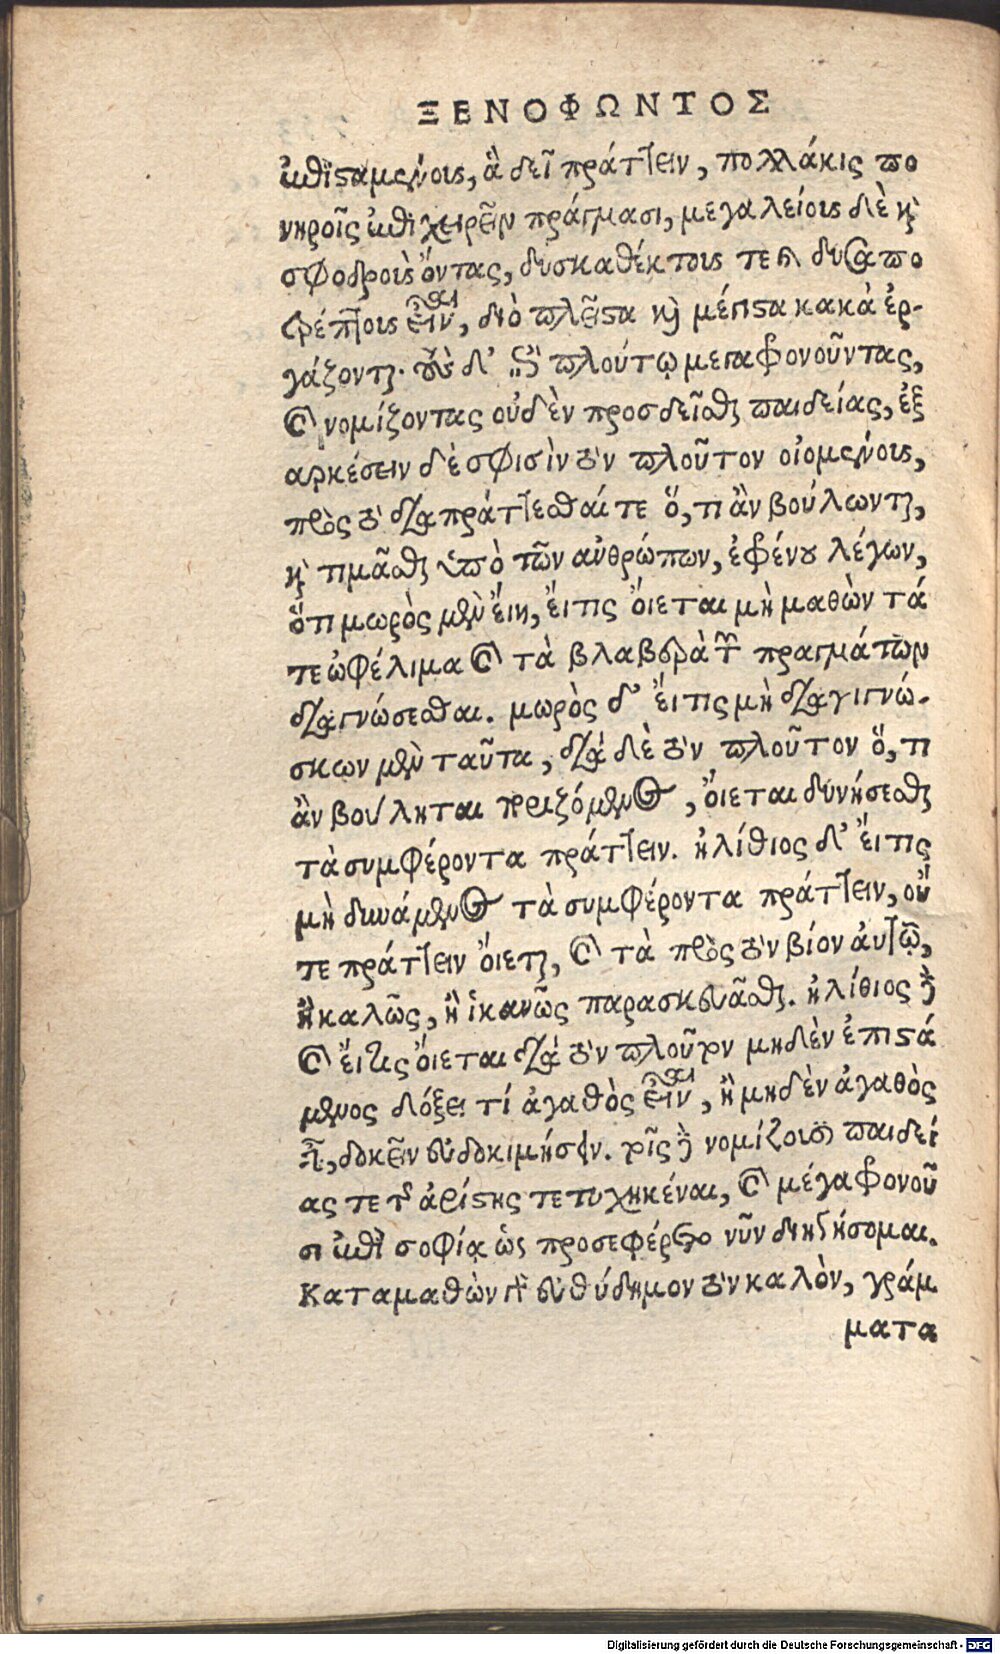 ΞΕΝΟΦΩΝΤΟΣ
ἐπιϛαμένους, ἃ δεῖ πράττειν, πολλάκις πο
νηροῖς ἐπιχειρεῖν πράγμασι, μεγαλείους δὲ κὶ
σφοδροὺς ὄντας, δυσκαθέκτους τε καὶ δυσαπο
τρέπτους εἶναι, διὸ πλεῖϛα κὶ μέγιϛα κακὰ ἐρ-
γάζονται. τοὺς δ' ἐπὶ πλούτῳ μεγαφρονοῦντας,
καὶ νομίζοντας οὐδὲν προσδεῖσθαι παιδείας, ἐξ
αρκέσειν δὲ σφισὶν τὸν πλοῦτον οἰομένους,
πρὸς τὸ διαπράττεσθαί τε ὅ, τι ἂν βούλωνται,
κὶ τιμᾶσθαι ὑπὸ τῶν ἀνθρώπων, ἐφρένου λέγων,
ὅτι μωρὸς μὲν ἔιη, ἔιτις ὄιεται μὴ μαθὼν τά
τε ὠφέλιμα καὶ τὰ βλαβερὰ τῶν πραγμάτων
διαγνώσεσθαι. μωρὸς δ' ἔιτις μὴ διαγιγνώ-
σκων μὲν ταῦτα, διὰ δὲ τὸν πλοῦτον ὅ, τι
ἂν βούληται ποριζόμενος, ὄιεται δυνήσεσθαι
τὰ συμφέροντα πράττειν. ἠλίθιος δ' ἔιτις
μὴ δυνάμενος τὰ συμφέροντα πράττειν, οὔ
τε πράττειν ὄιεται, καὶ τὰ πρὸς τὸν βίον ἀυτῷ,
ἢ καλῶς, ἢ ἱκανῶς παρασκευᾶσθαι. ἠλίθιος δὲ
καὶ ἔιτις ὄιεται διὰ τὸν πλοῦτον μηδὲν ἐπιϛά
μενος δόξει τί ἀγαθὸς εἶναι, ἢ μηδὲν ἀγαθὸς
εἶναι, δοκεῖν εὐδοκιμήσειν. τοῖς δὲ νομίζουσι παιδεί
ας τε τῆς ἀρίϛης τετυχηκέναι, καὶ μέγα φρονοῦ
σι ἐπὶ σοφίᾳ ὡς προσεφέρετο νῦν διηγήσομαι.
Καταμαθὼν γὰρ εὐθύδημον τὸν καλὸν, γράμ
ματα
Digitalisierung gefördert durch die Deutsche Forschungsgemeinschaft - DFG